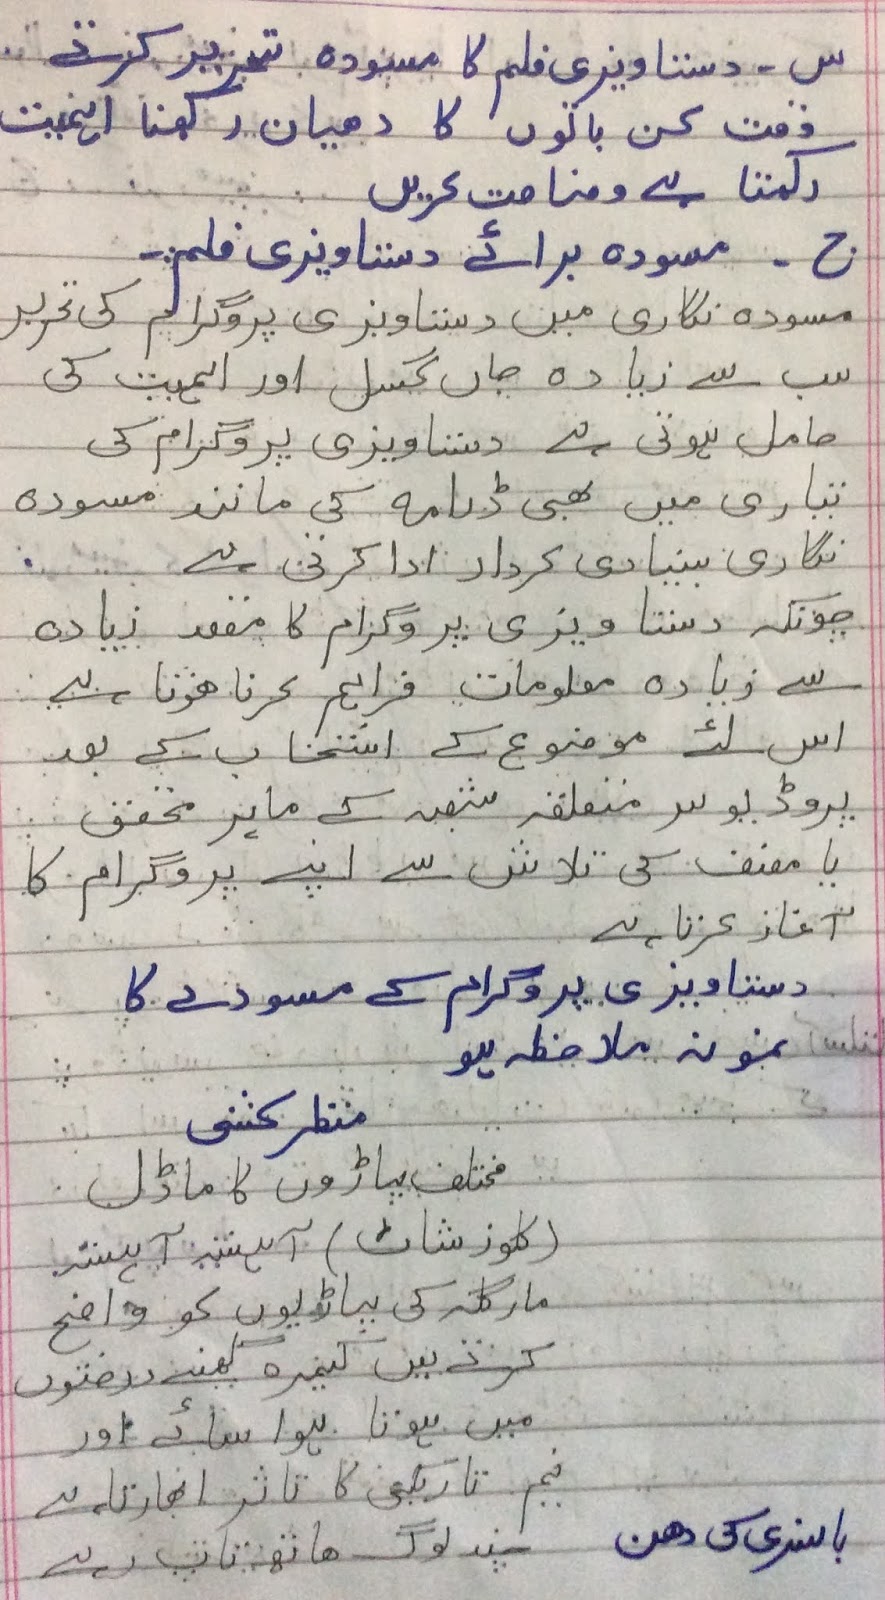 س۔ دستاویزی فلم کا مسودہ تحریر کرتے
وقت کن باتوں کا دھیان رکھنا اہمیت
رکھتا ہے وضاحت کریں
ج۔ مسودہ برائے دستاویزی فلم۔
مسودہ نگاری میں دستاویزی پروگرام کی تحریر
سب سے زیادہ جاں گسل اور اہمیت کی
حامل ہوتی ہے دستاویزی پروگرام کی
تیاری میں بھی ڈرامہ کی مانند مسودہ
نگاری بنیادی کردار ادا کرتی ہے
چونکہ دستاویزی پروگرام کا مقصد زیادہ
سے زیادہ معلومات فراہم کرنا ہوتا ہے
اس لئے موضوع کے انتخاب کے بعد
پروڈیوسر متعلقہ شعبہ کے ماہر محقق
یا مصنف کی تلاش سے اپنے پروگرام کا
آغاز کرتا ہے
دستاویزی پروگرام کے مسودے کا
نمونہ ملاحظہ ہو
منظر کشی
مختلف پہاڑوں کا ماڈل
(کلوز شاٹ) آہستہ آہستہ
مارگلہ کی پہاڑیوں کو واضح
کرتے ہیں کیمرہ گھنے درختوں
میں ہوتا ہوا سائے اور
نیم تاریکی کا تاثر ابھارتا ہے
بانسری کی دھن چند لوگ ہاتھ تاپ رہے